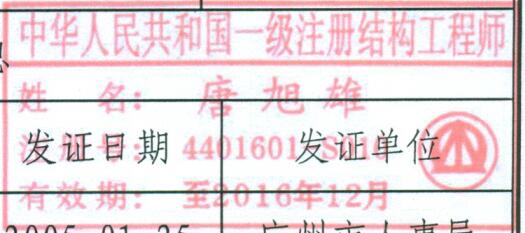 中华人民共和国一级注册结构工程师
姓 名: 唐旭雄
发证日期 发证单位
4401601
有效期: 至2016年12月